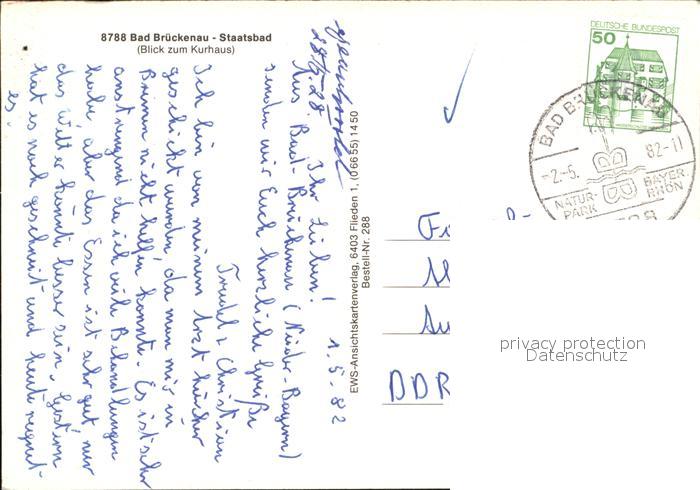 8788 Bad Brückenau - Staatsbad
(Blick zum Kurhaus)
1.5.82
Ihr Lieben!
Aus Bad-Brückenau (Nieder-Bayern)
senden wir Euch herzliche Grüße
Trudel & Christian
Ich bin von meinem Arzt hierher
geschickt worden, da man mir in
Brünn nicht helfen konnte. Es ist sehr
anstrengend da ich viele Behandlungen
habe, aber das Essen ist sehr gut nur
das Wetter könnte besser sein, Gestern
hat es noch geschneit und heute regnet
es.
EWS-Ansichtskartenverlag, 6403 Flieden 1, (0 66 55) 14 50
Bestell-Nr. 288
DEUTSCHE BUNDESPOST
50
BAD BRÜCKENAU
-2.-5. 82-11
NATUR-
PARK
BAYER.
RHÖN
DDR
privacy protection
Datenschutz